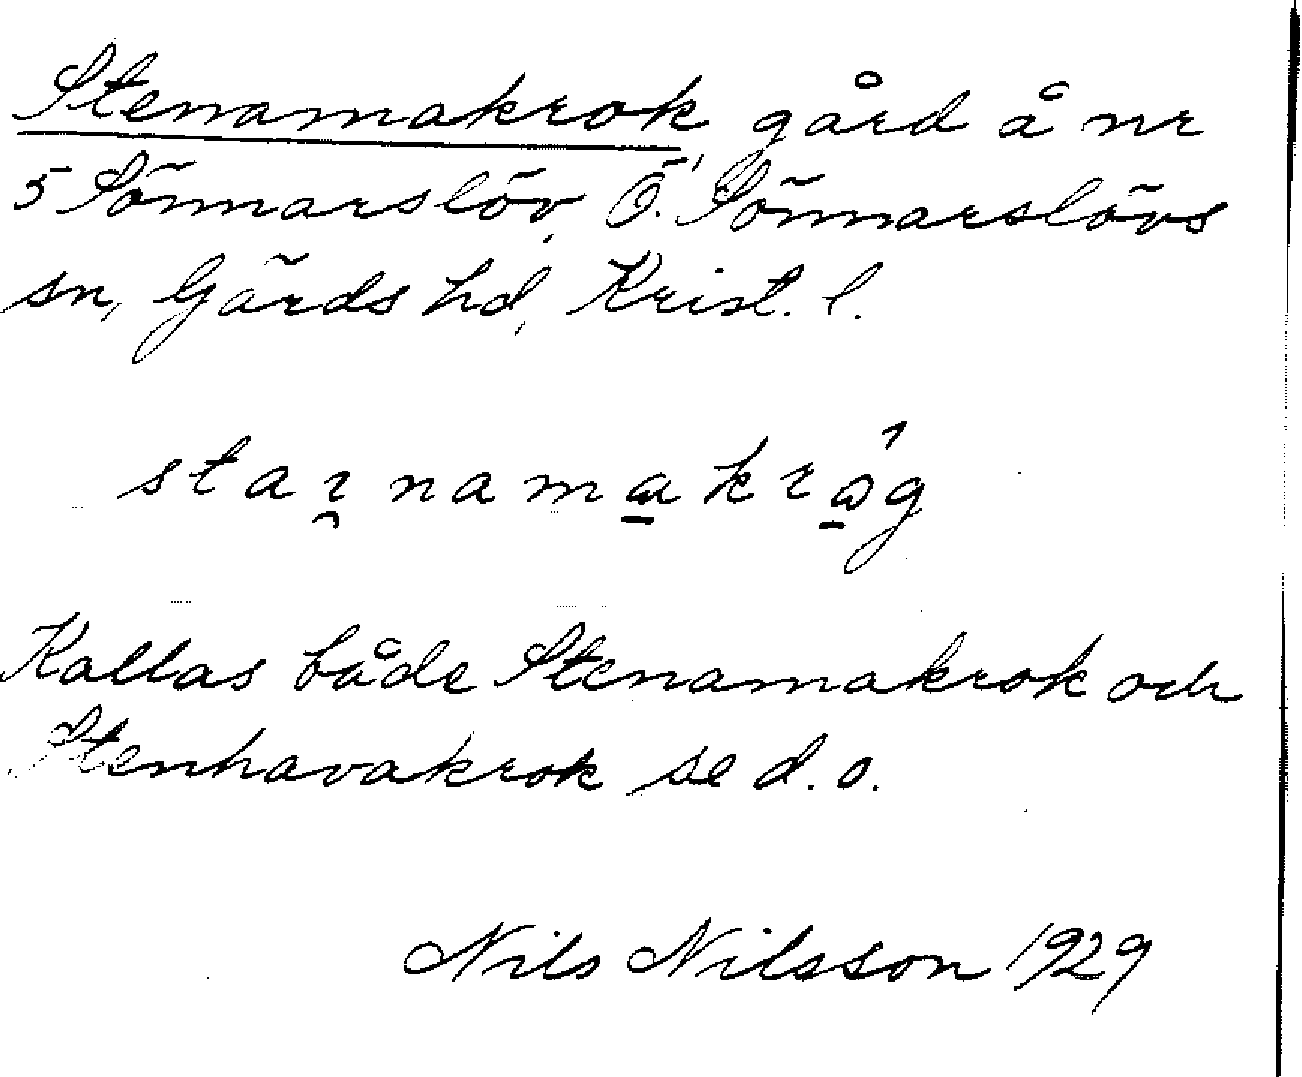 Stenamakrok gård å nr
5 Sönnarslöv, Ö. Sönnarslövs
sn, Gärds hd, Krist. l.
starnamakråg
Kallas både Stenamakrok och
Stenhavakrok se d.o.
Nils Nilsson 1929